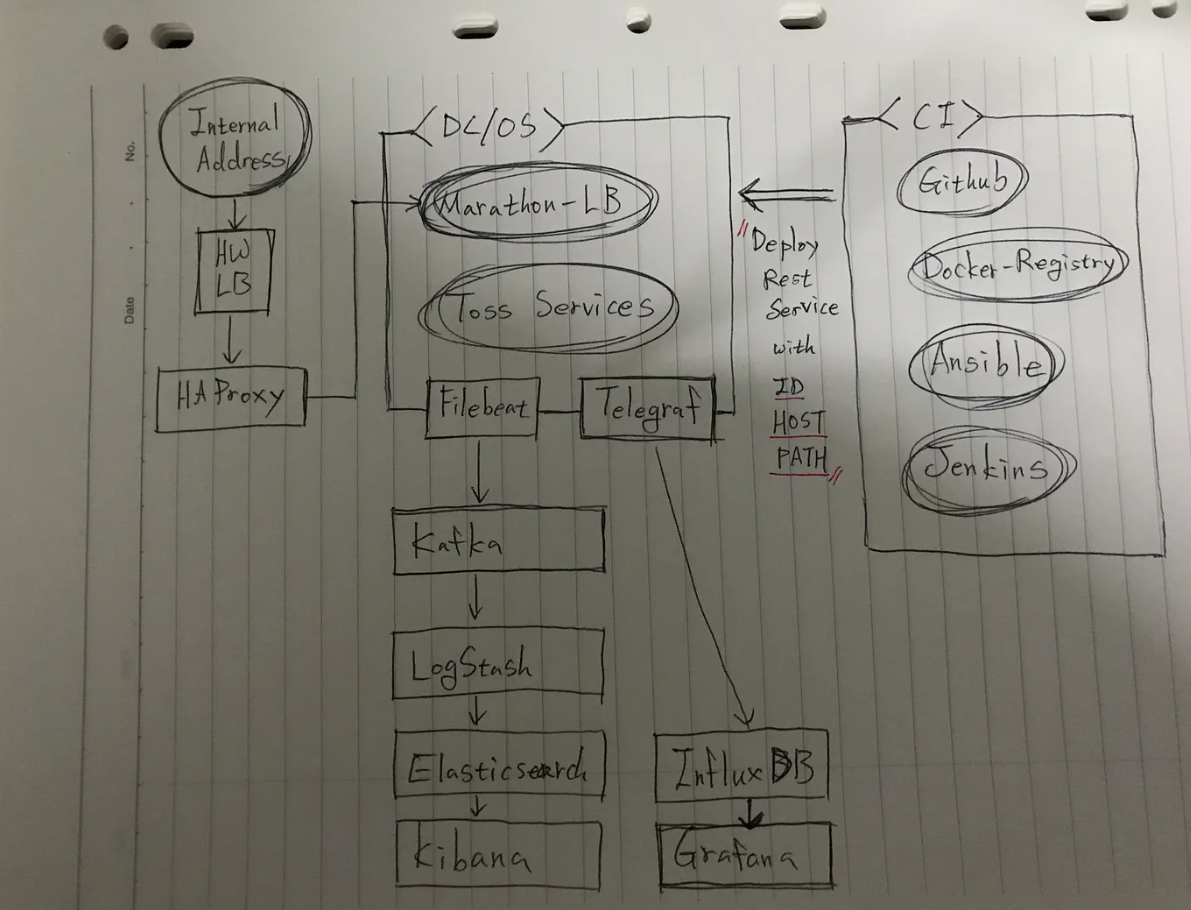 No.
Date
Internal
Address
HW
LB
HAProxy
<DC/OS>
Marathon-LB
Toss Services
Filebeat
Telegraf
Kafka
LogStash
Elasticsearch
Kibana
InfluxDB
Grafana
"Deploy
Rest
Service
with
ID
HOST
PATH"
<CI>
Github
Docker-Registry
Ansible
Jenkins